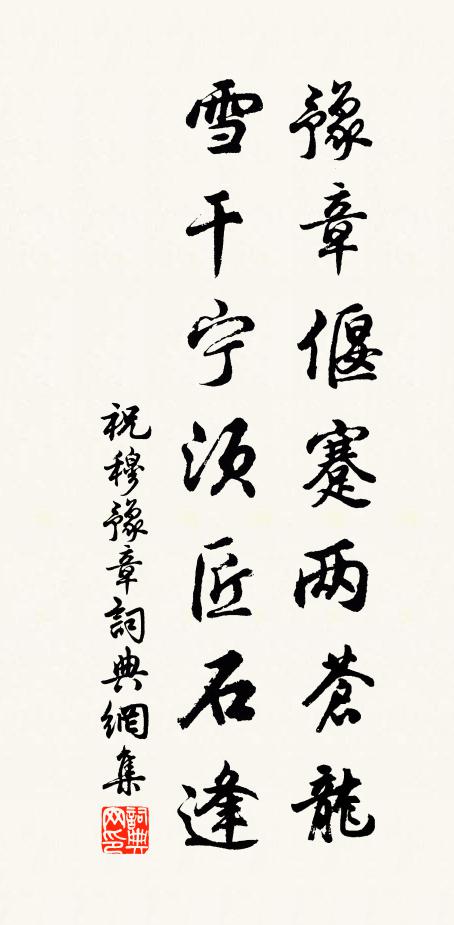 豫章偃蹇两蒼龍
雪干宁須匠石逢
祝穆豫章詞典網集
詞典网印